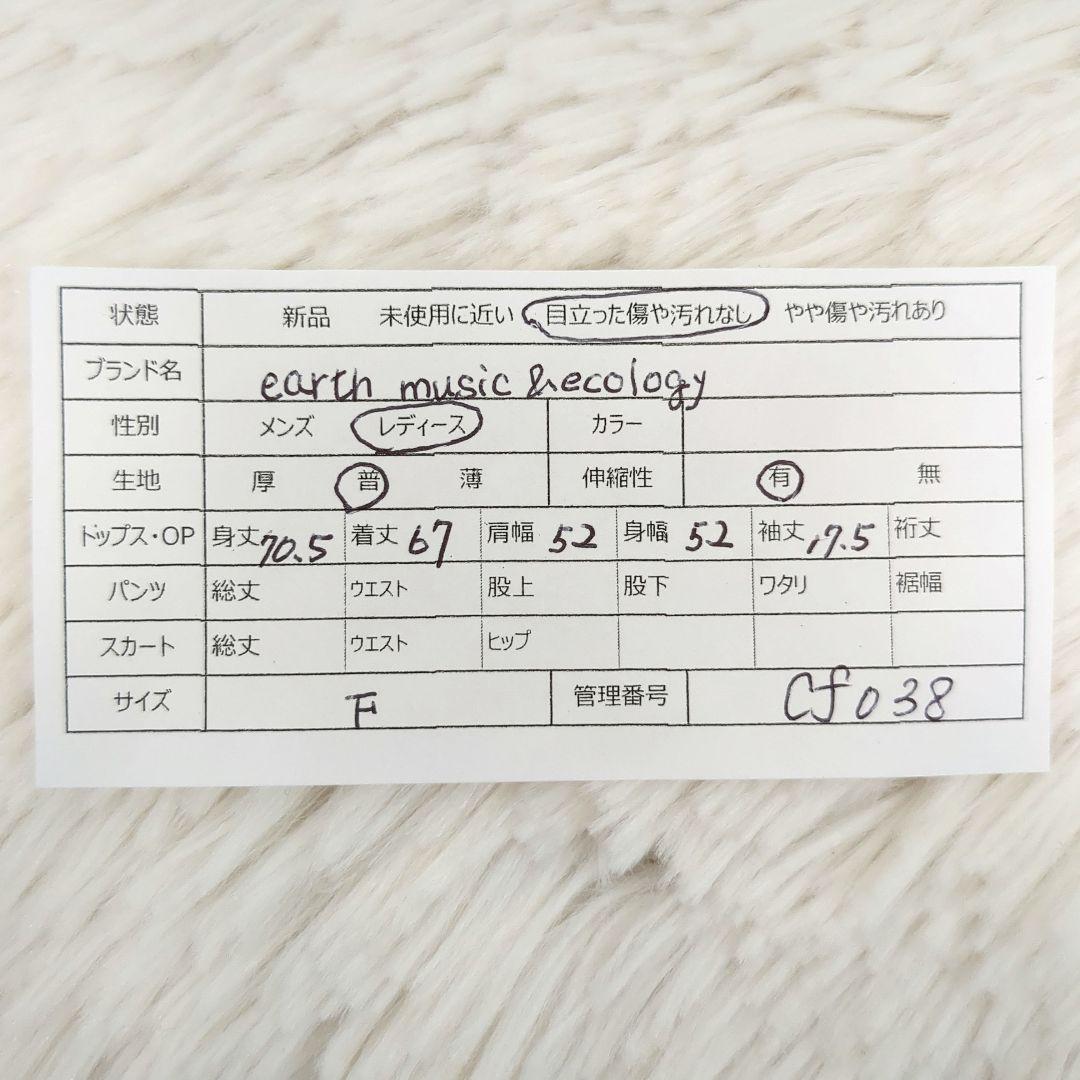 状態 新品 未使用に近い 目立った傷や汚れなし やや傷や汚れあり
ブランド名 earth music &ecology
性別 メンズ レディース カラー
生地 厚 普 薄 伸縮性 有 無
トップス・OP 身丈 70.5 着丈 67 肩幅 52 身幅 52 袖丈 17.5 裄丈
パンツ 総丈 ウエスト 股上 股下 ワタリ 裾幅
スカート 総丈 ウエスト ヒップ
サイズ F 管理番号 Cf038